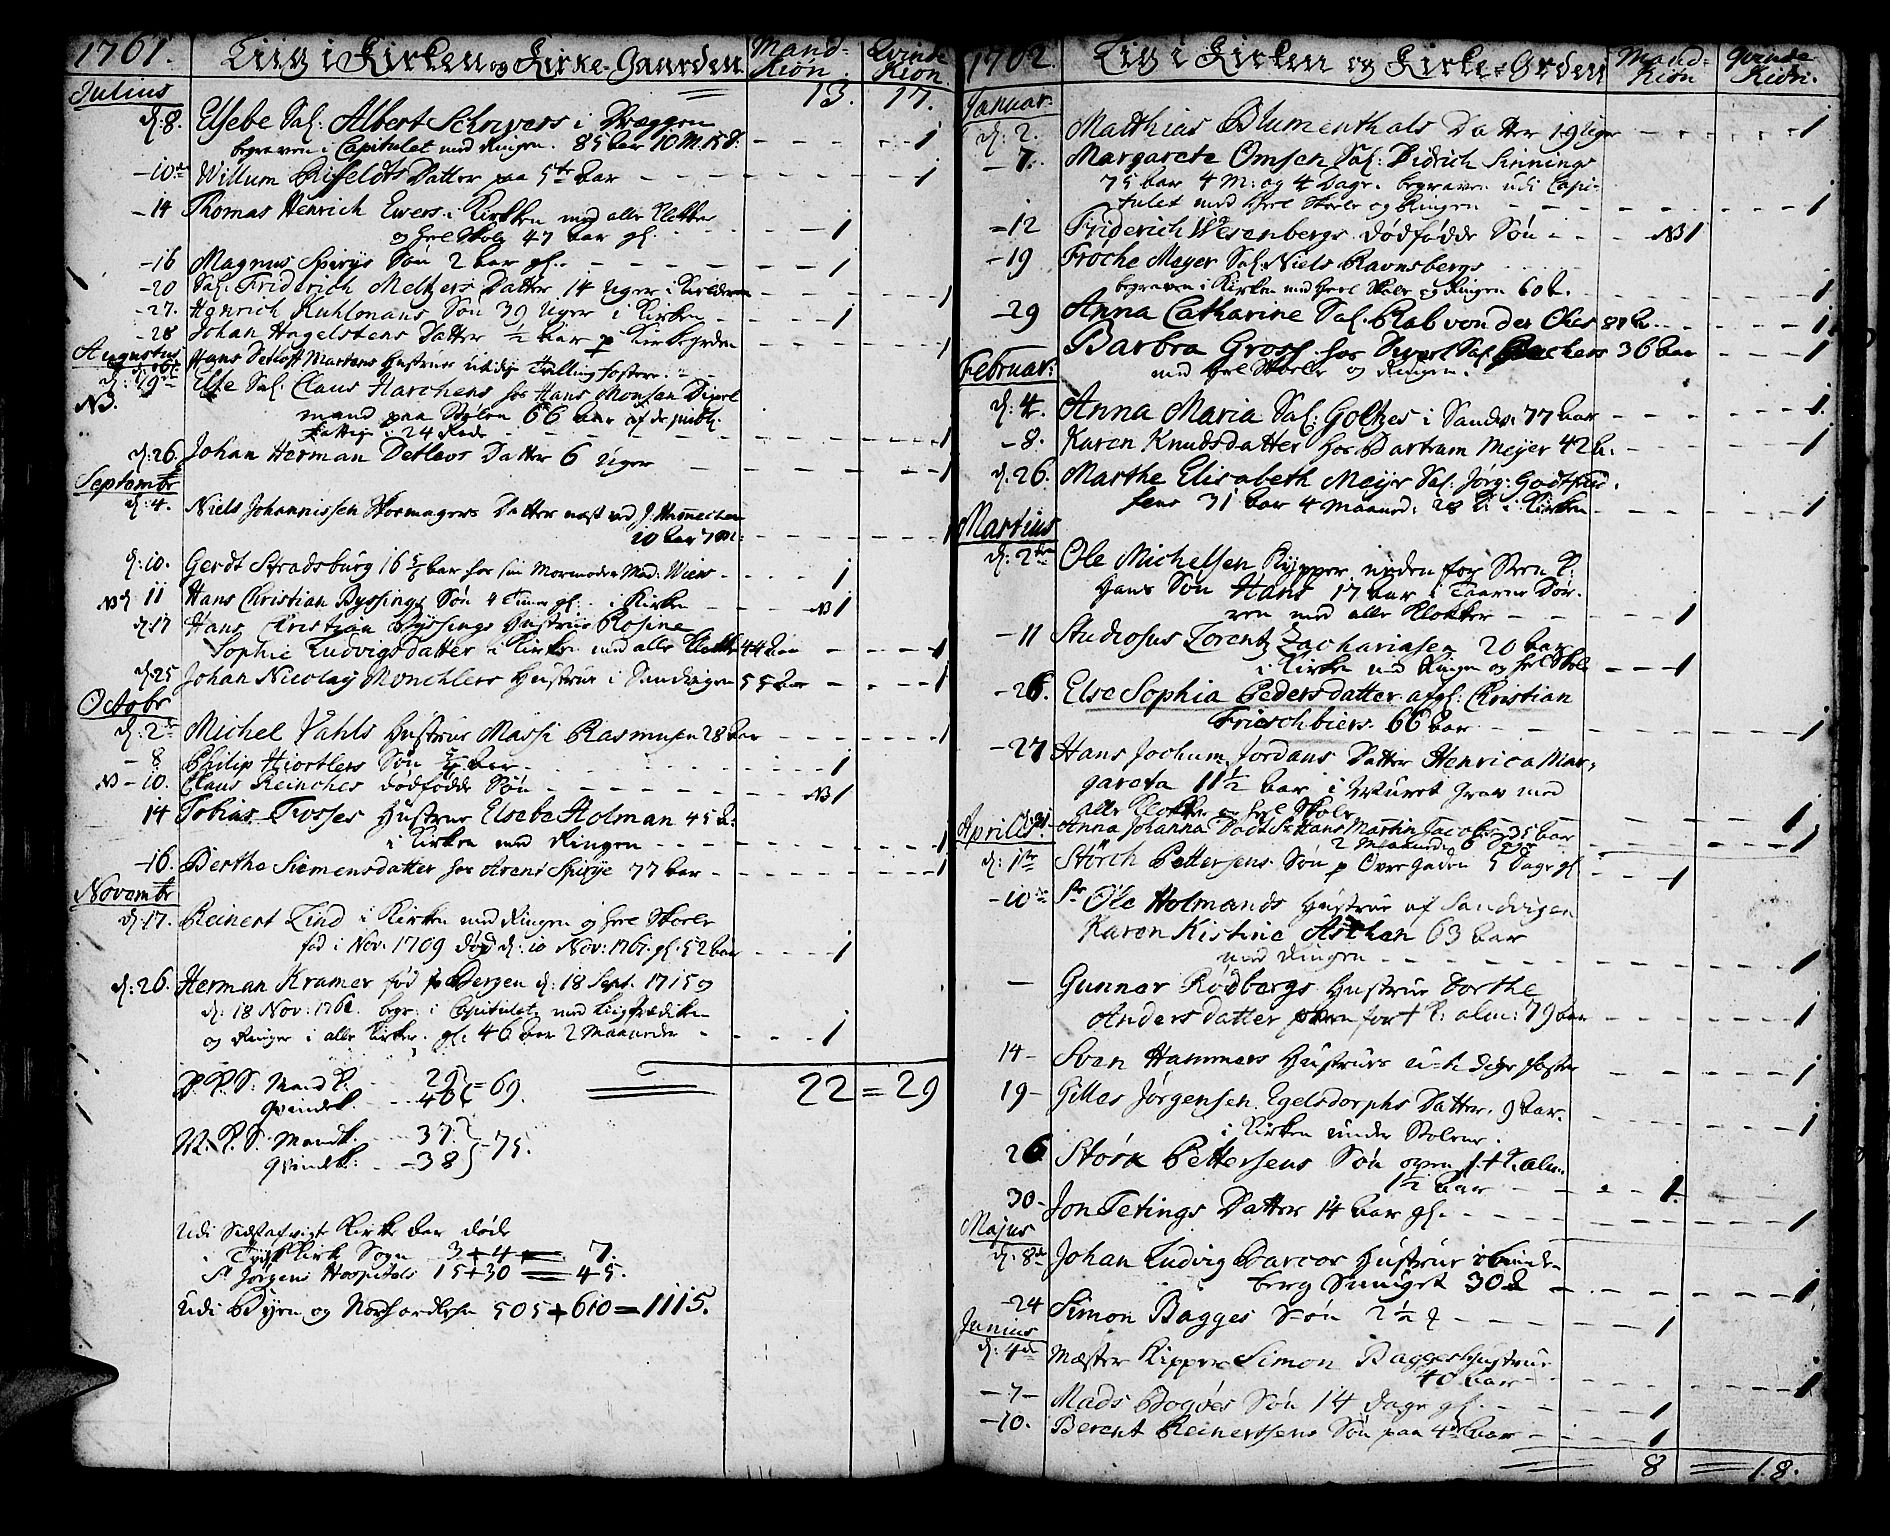 1761. Liig i Kirken og Kirke-Gaarden Mand- Kiøn Qvinde Kiøn
Julius 13. 17.
d: 8. Elsebe Sal: Albert Schrøers i Dræggen
begraven i Capitulet med Ringen. 85 Aar 10 M. 15 d. 1
-10de Willum Rifeldts Datter paa 5te Aar 1
-14 Thomas Henrich Ewers i Kirken med alle Klokker
og heel Skole 47 Aar gl. 1
-16 Magnus Søn 2 Aar gl. 1
-20 Sal: Friderich Meltzers Datter 14 Uger i Kielderen 1
-27. Henrich Kuhlmans Søn 39 Uger i Kirken 1
-28 Johan Hagelstens Datter ½ Aar p Kirkegrden 1
Augustus Hans Detloff Martens Hustrues utidige Tvilling fostere.
d: 19de Else Sal: Claus Harchens hos Hans Monsen
NB. mand paa Stølen 66 Aar af de publ:
Fattige i 24 Rode 1
d: 26. Johan Herman Detlovs Datter 6 Uger 1
Septembr
d: 4. Niels Johannissen Skomagers Datter næst ved J.
20 Aar 7 M: 1
d: 10. Gerdt Stradsburg 16 Aar hos sin Mormoder Mad: Wiers 1
NB d 11 Hans Christian Byssings Søn 4 Timer gl. i Kirken NB 1
d 17 Hans Christian Byssings Hustrue Rosine
Sophie Ludvigsdatter i Kirken med alle Klokker 44 Aar 1
d. 25 Johan Nicolay Monchlers Hustrue i Sandvigen 55 Aar 1
Octobr
d: 2de Michel Vahls Hustrue Massi Rasmusen 28 Aar 1
- 8 Philip Hiortlers Søn Aar 1
NB - 10. Claus Reinches dødfødde Søn NB 1
14 Tobias Trosses Hustrue Elsebe Holman 45 A:
i Kirken med Ringen 1
-16. Berthe Siemensdatter hos Arent 77 Aar 1
Novembr
d: 17. Reinert Lind i Kirken med Ringen og heel Skole
fød i Nov. 1709 død d: 10 Nov: 1761. gl. 52 Aar 1
d: 26. Herman Kramer fød i Bergen d: 18 Sept. 1715 og
d: 18 Nov: 1761. begr: i Capitulet med Liigprædiken
og Ringer i alle Kirker. gl: 46 Aar 2 Maaneder 1
22 = 29
D. K. S: Mand K. 29
Qvindek. 40 = 69.
N. K. S: Mandk. 37.
Qvindk: 38 - 75.
Udi Sidstafvigte Kirke Aar døde
i Tydsk Kirke Sogn 3 + 4 = 7.
St Jørgens Hospitals 15 + 30 = 45.
Udi Byen og Nordfordelsen 505 + 610 = 1115.
1762. Liig i Kirken og Kirke-Grden Mand- Kiøn Qvinde Kiøn.
Januar:
d: 2. Matthias Blumenthals Datter 19 Uger 1
- 7. Margarete Omsen Sal: Didrich Sinnings
75 Aar 4 M: og 4 Dage. begraven udi Capi-
tulet med heel Skole og Ringen 1
-12 Friderich Wesenbergs dødfødde Søn NB 1
-19 Frøche Meyer Sal: Niels Ravnsbergs
begraven i Kirken med heel Skole og Ringen 60 A. 1
-29 Anna Catharine Sal: Rab von der Ohes 87 A. 1
Barbra Gross hos Sal: 36 Aar 1
Februar: med heel Skole og Ringen.
d: 4. Anna Maria Sal: Goltzes i Sandv: 77 Aar 1
- 8. Karen Knudsdatter hos Bartram Meyer 42 A. 1
d: 26. Marthe Elisabeth Meyer Sal: Jørg: Godtfrid-
sens 31 Aar 4 Maaned: 28 D. i Kirken 1
Martius
d: 2den Ole Michelsen Kypper neden for Steen K:
Hans Søn Hans 17 Aar i Taarne Dør-
ren med alle Klokker 1
-11 Studiosus Lorentz Zachariasen 20 Aar
i Kirken med Ringen og heel Skole 1
-26. Else Sophia Pedersdatter afgl: Christian
Frieschbiers 66 Aar 1
-27 Hans Jochum Jordans Datter Henrica Mar-
gareta 11½ Aar i Muuret Grav med
alle Klokker og heel Skole 1
Aprilis Anna Johanna Dodt Sr Hans Martin Jacobsen 35 Aar
2 Maaneder 6 Dage 1
d: 1te Störch Pettersens Søn p Øvregaden 5 Dage gl 1
-10de Sr Ole Holmands Hustrue af Sandvigen
Karen Kistine 63 Aar
med Ringen 1
- Gunner Rødbergs Hustrue Dorthe
Andersdatter oven for † K: alm: 79 Aar 1
14- Sven Hammers Hustrues foster 1
19- Gilles Jørgensen Egelsdorphs Datter 9 Aar.
i Kirken under Stolene. 1
26 Störk Pettersens Søn oven f. † K. alm:
1½ Aar 1.
30- Jon Tetings Datter 14 Aar gl. 1
Majus
d: 8de Johan Ludvig Barcos Hustrue
berg Smuget 30 A 1
-24 Simon Bagges Søn 2½ 1
Junius
d: 4de Mester Kipper Simon Bagges Hustrue
40 Aar 1
-7- Mads Bogøes Søn 14 Dage gl. 1
-10. Berent Reinertsens Søn paa 4de Aar 1
8 = 18.